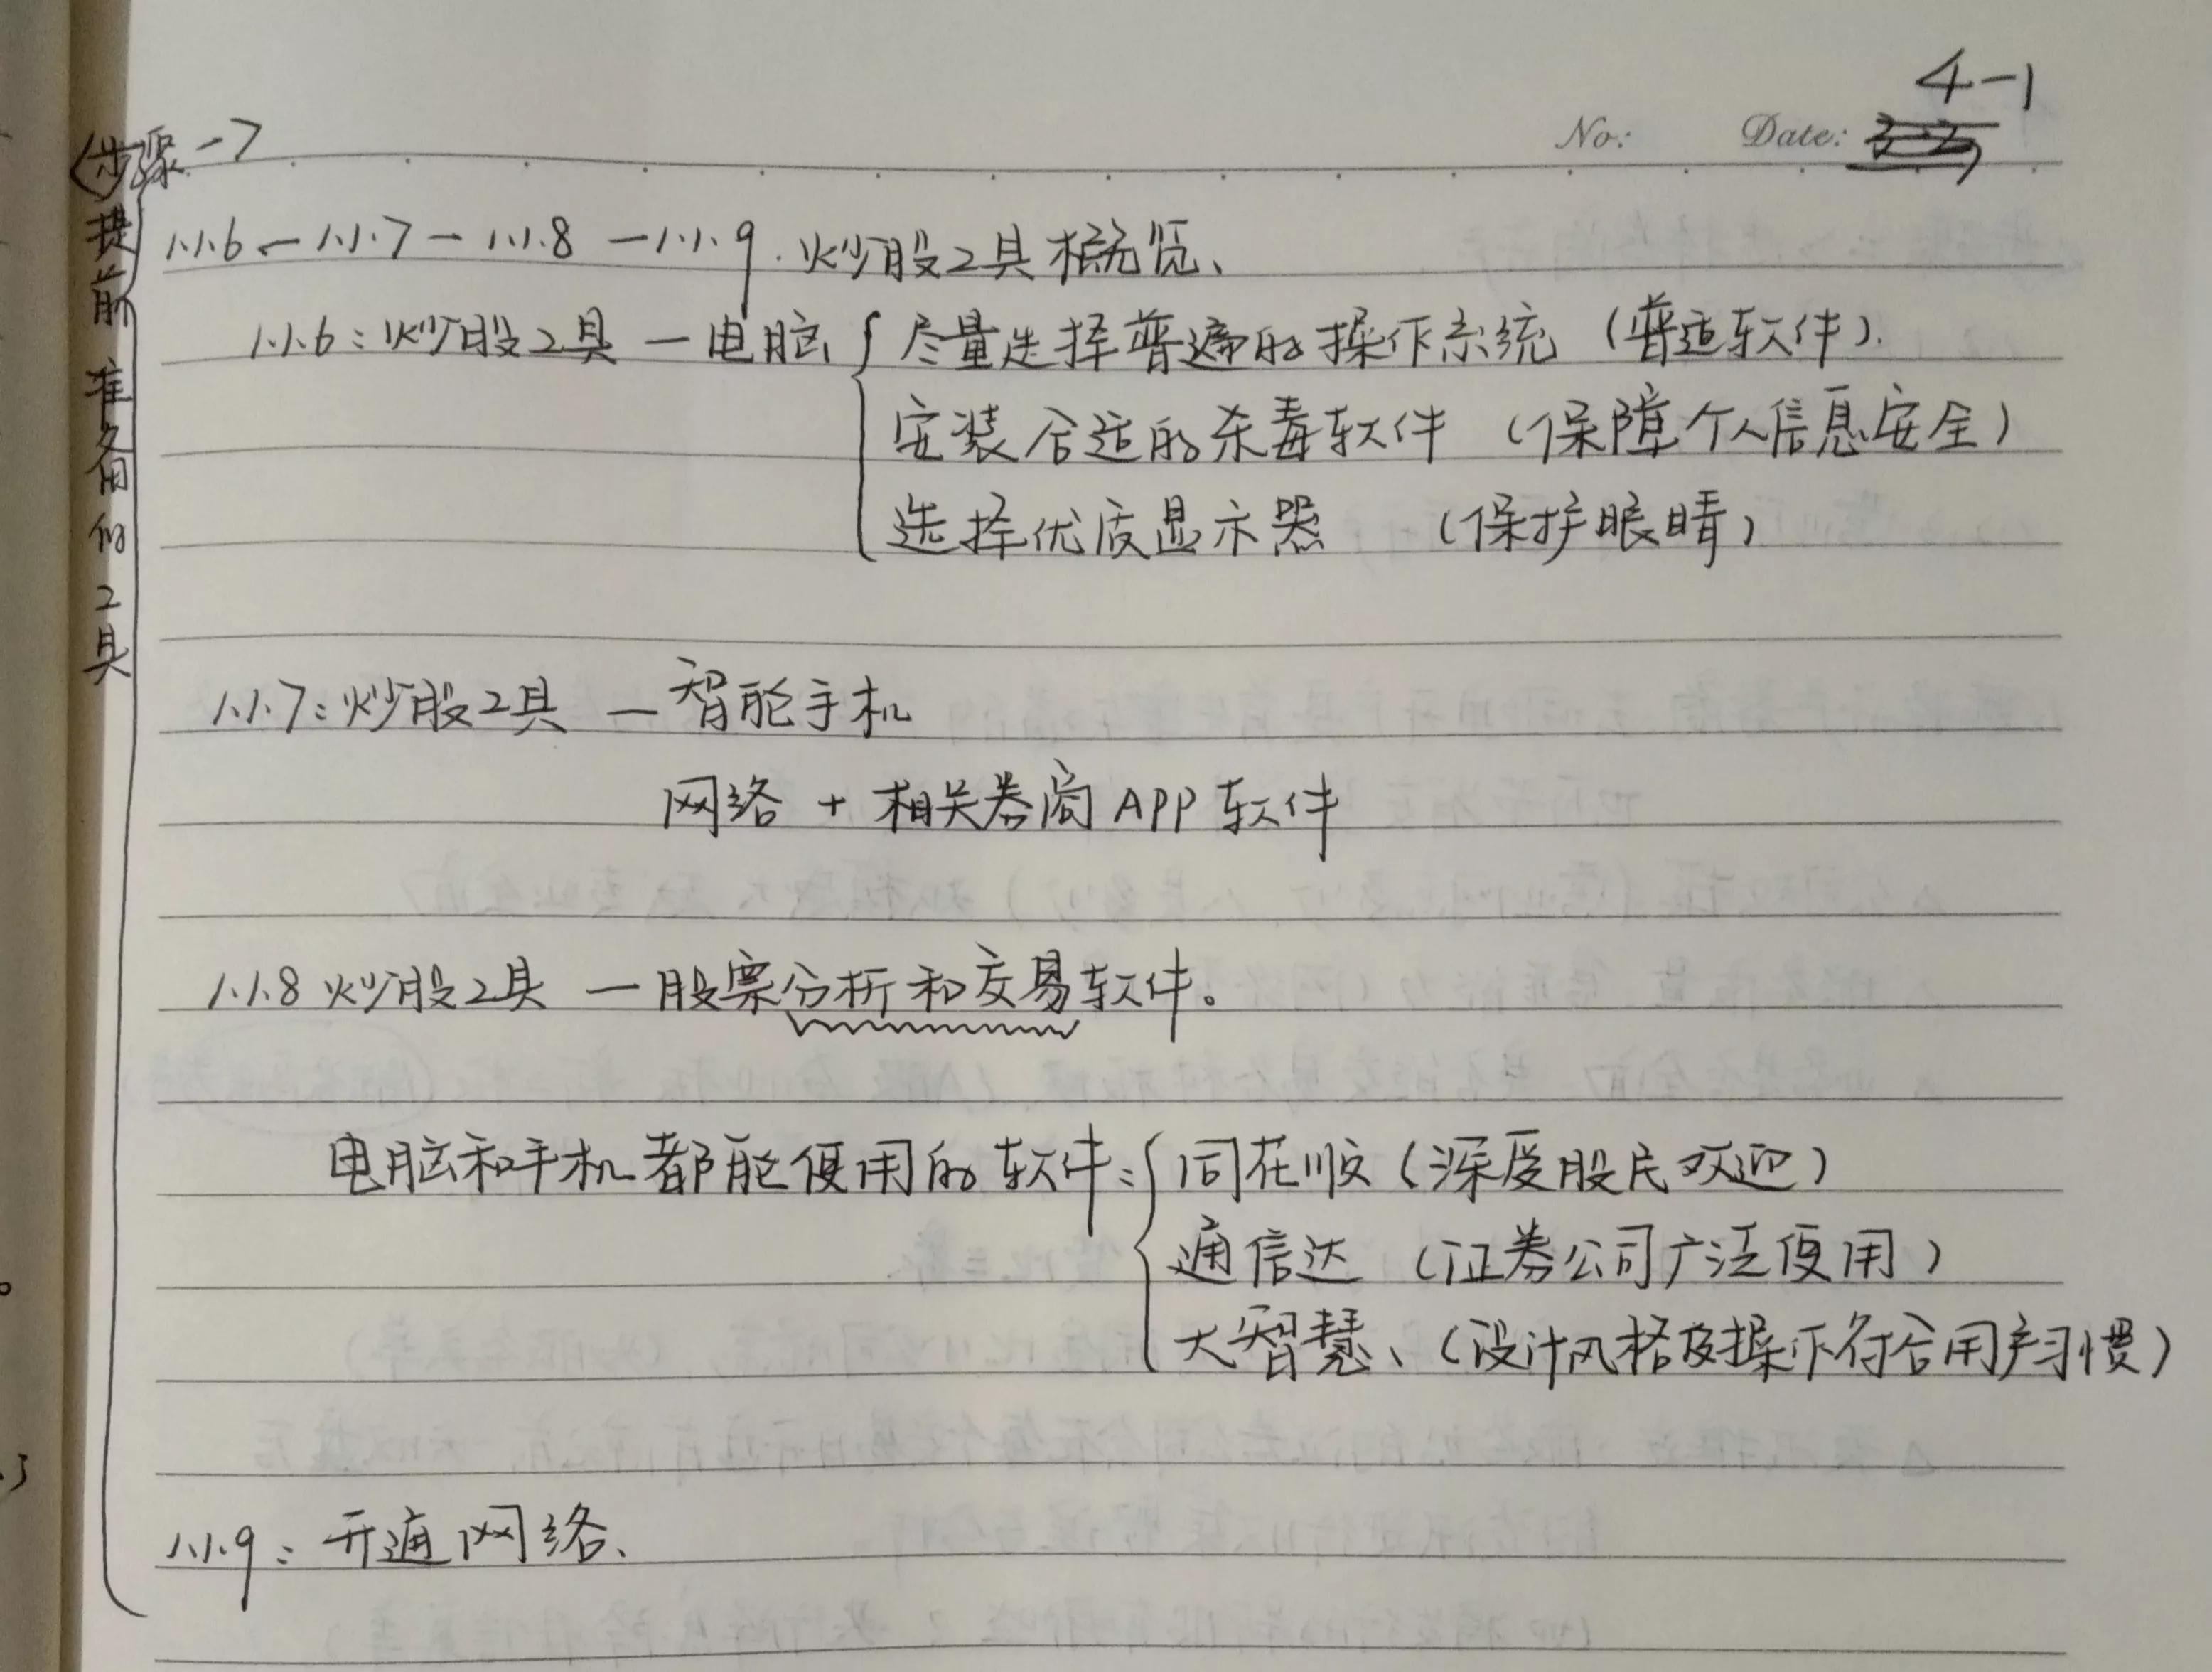 4-1
No: Date:
〈步骤一〉
提前准备的工具
1.1.6 — 1.1.7 — 1.1.8 — 1.1.9. 炒股工具概览、
1.1.6：炒股工具 — 电脑 { 尽量选择普遍的操作系统 （普适软件）.
安装合适的杀毒软件 （保障个人信息安全）
选择优质显示器 （保护眼睛）
1.1.7：炒股工具 — 智能手机
网络 + 相关券商APP软件
1.1.8 炒股工具 — 股票分析和交易软件。
电脑和手机都能使用的软件：{ 同花顺（深受股民欢迎）
通信达 （证券公司广泛使用）
大智慧、（设计风格及操作符合用户习惯）
1.1.9：开通网络、